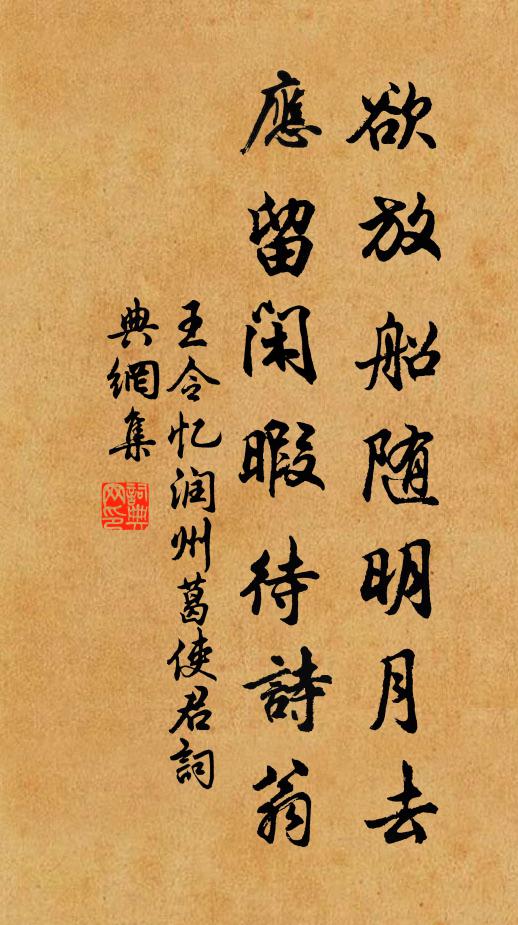 欲放船随明月去
應留閑暇待詩翁
王令忆润州葛使君詞
典網集
詞典網印